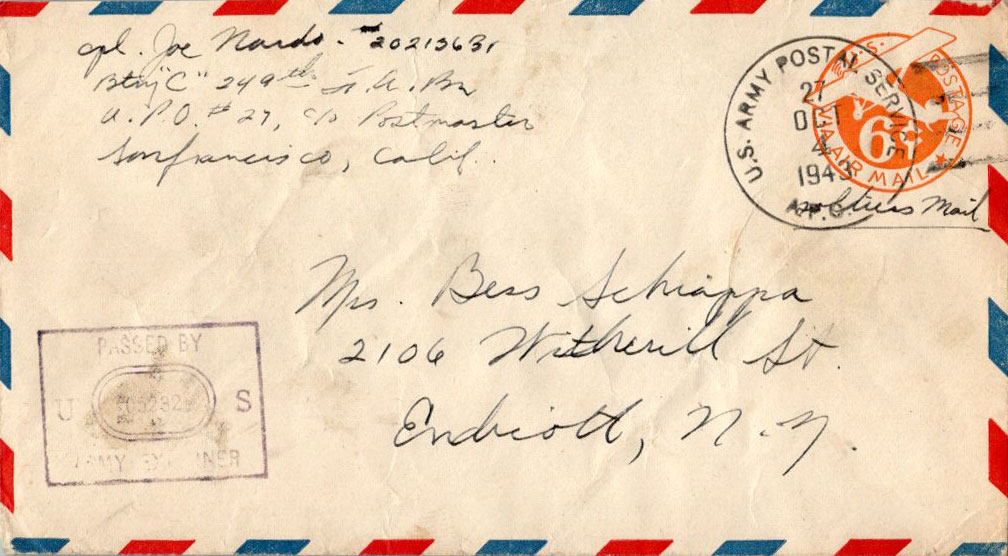 cpl. Joe Nardo - 20213631
Btry "C" 249th F.A. Bn
A.P.O. # 27, c/o Postmaster
Sanfrancisco, Calif.
U.S. ARMY POSTAL SERVICE
27
OCT
4
1943
A.P.O.
U.S. POSTAGE
6¢
VIA AIR MAIL
soldiers Mail
Mrs. Bess Schiappa
2106 Witherill St.
Endicott, N.Y.
PASSED BY
U S
ARMY EXAMINER